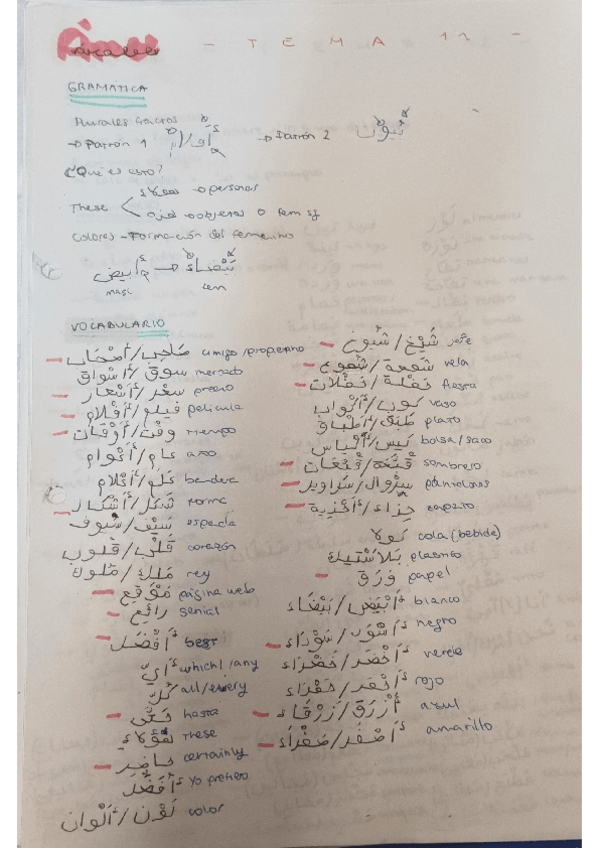 - TEMA 11 -
GRAMATICA
Plurales fractos
→ Patrón 1 أَفْلام → Patrón 2 بُيُوْت
¿Qué es esto?
These
هؤلاء → personas
هذه → objetos o fem sg
Colores - Formación del femenino
أبيض → بَيْضَاء
masc fem
VOCABULARIO
صَاحِب/أَصْحَاب amigo/propietario
سوق/أَسْوَاق mercado
سعْر/أَسْعَار precio
فيلم/أَفْلام pelicula
وَقْت/أَوْقَات tiempo
عَام/أَعْوام año
عَلَم/أَعْلام bandera
شَكْل/أَشْكَال forma
سَيْف/سُيُوف espada
قَلْب/قُلوب corazón
مَلِك/مُلوك rey
مَوْقِع página web
رائِع genial
أَفْضَل best
أَيّ which/any
كُلّ all/every
حَتَّى hasta
هَؤُلاء these
حاضِر certainly
أُفَضِّل yo prefiero
لَوْن/أَلْوان color
شَيْخ/شُيُوخ jefe
شَمعة/شُموع vela
حَفْلة/حَفْلات fiesta
كوب/أَكْواب vaso
طَبَق/أَطْبَاق plato
كيس/أَكْياس bolsa/saco
قُبَّعَة/قُبَّعَات sombrero
سِرْوَال/سَرَاوِيل pantalones
حِذَاء/أَحْذِية zapato
كولا cola (bebida)
بلَاسْتِيك plastico
وَرَق papel
أَبْيَض/بَيْضَاء blanco
أَسْوَد/سَوْدَاء negro
أَخْضَر/خَضْرَاء verde
أَحْمَر/حَمْرَاء rojo
أَزْرَق/زَرْقَاء azul
أَصْفَر/صَفْرَاء amarillo